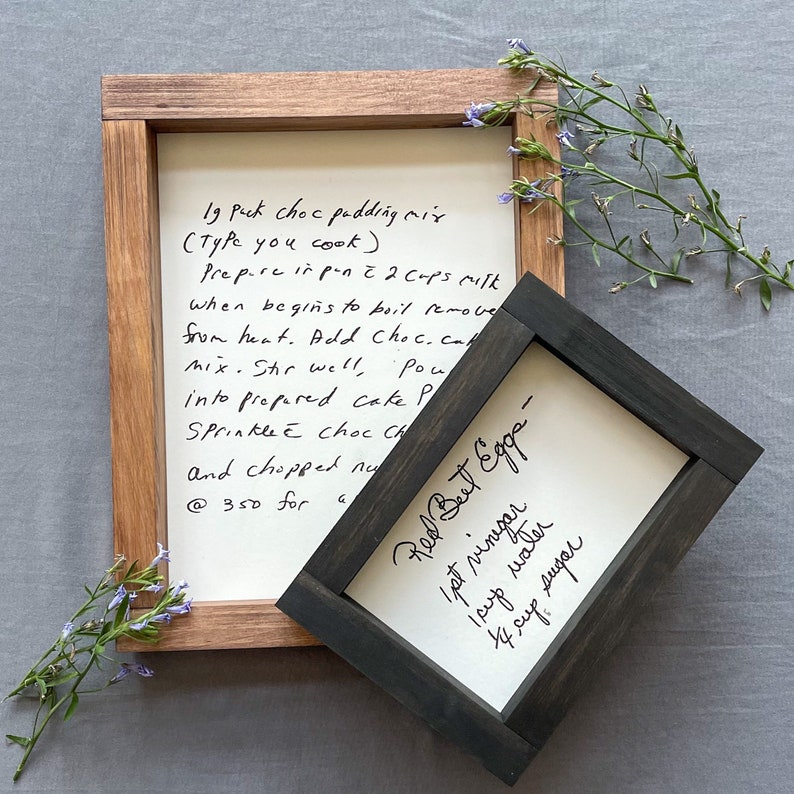 1g pack choc pudding mix
(Type you cook)
Prepare in pan c̄ 2 cups milk
when begins to boil remove
from heat. Add choc. cak
mix. Stir well, Pou
into prepared cake P
Sprinkle c̄ choc ch
and chopped nu
@ 350 for
Red Beat Eggs-
1pt vinegar
1cup water
1/4 cup sugar